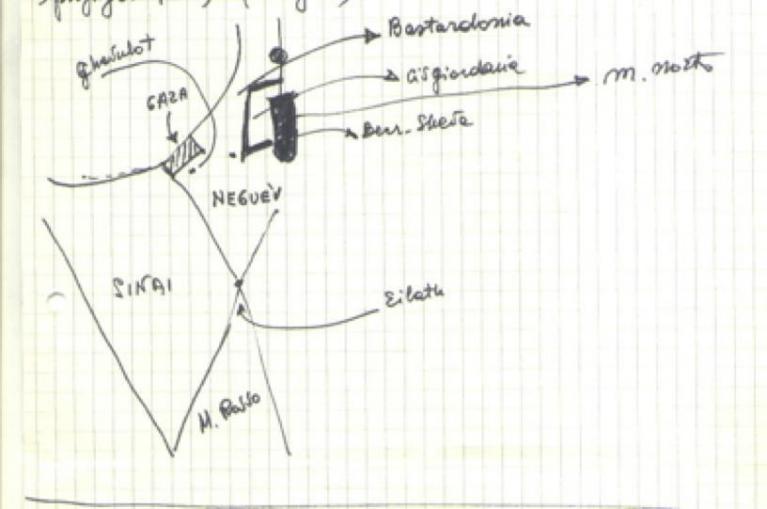 Bastardonia
ghevulot
Cisgiordania
M. Morto
GAZA
Beer-Sheva
NEGUEV
SINAI
Eilath
M. Rosso